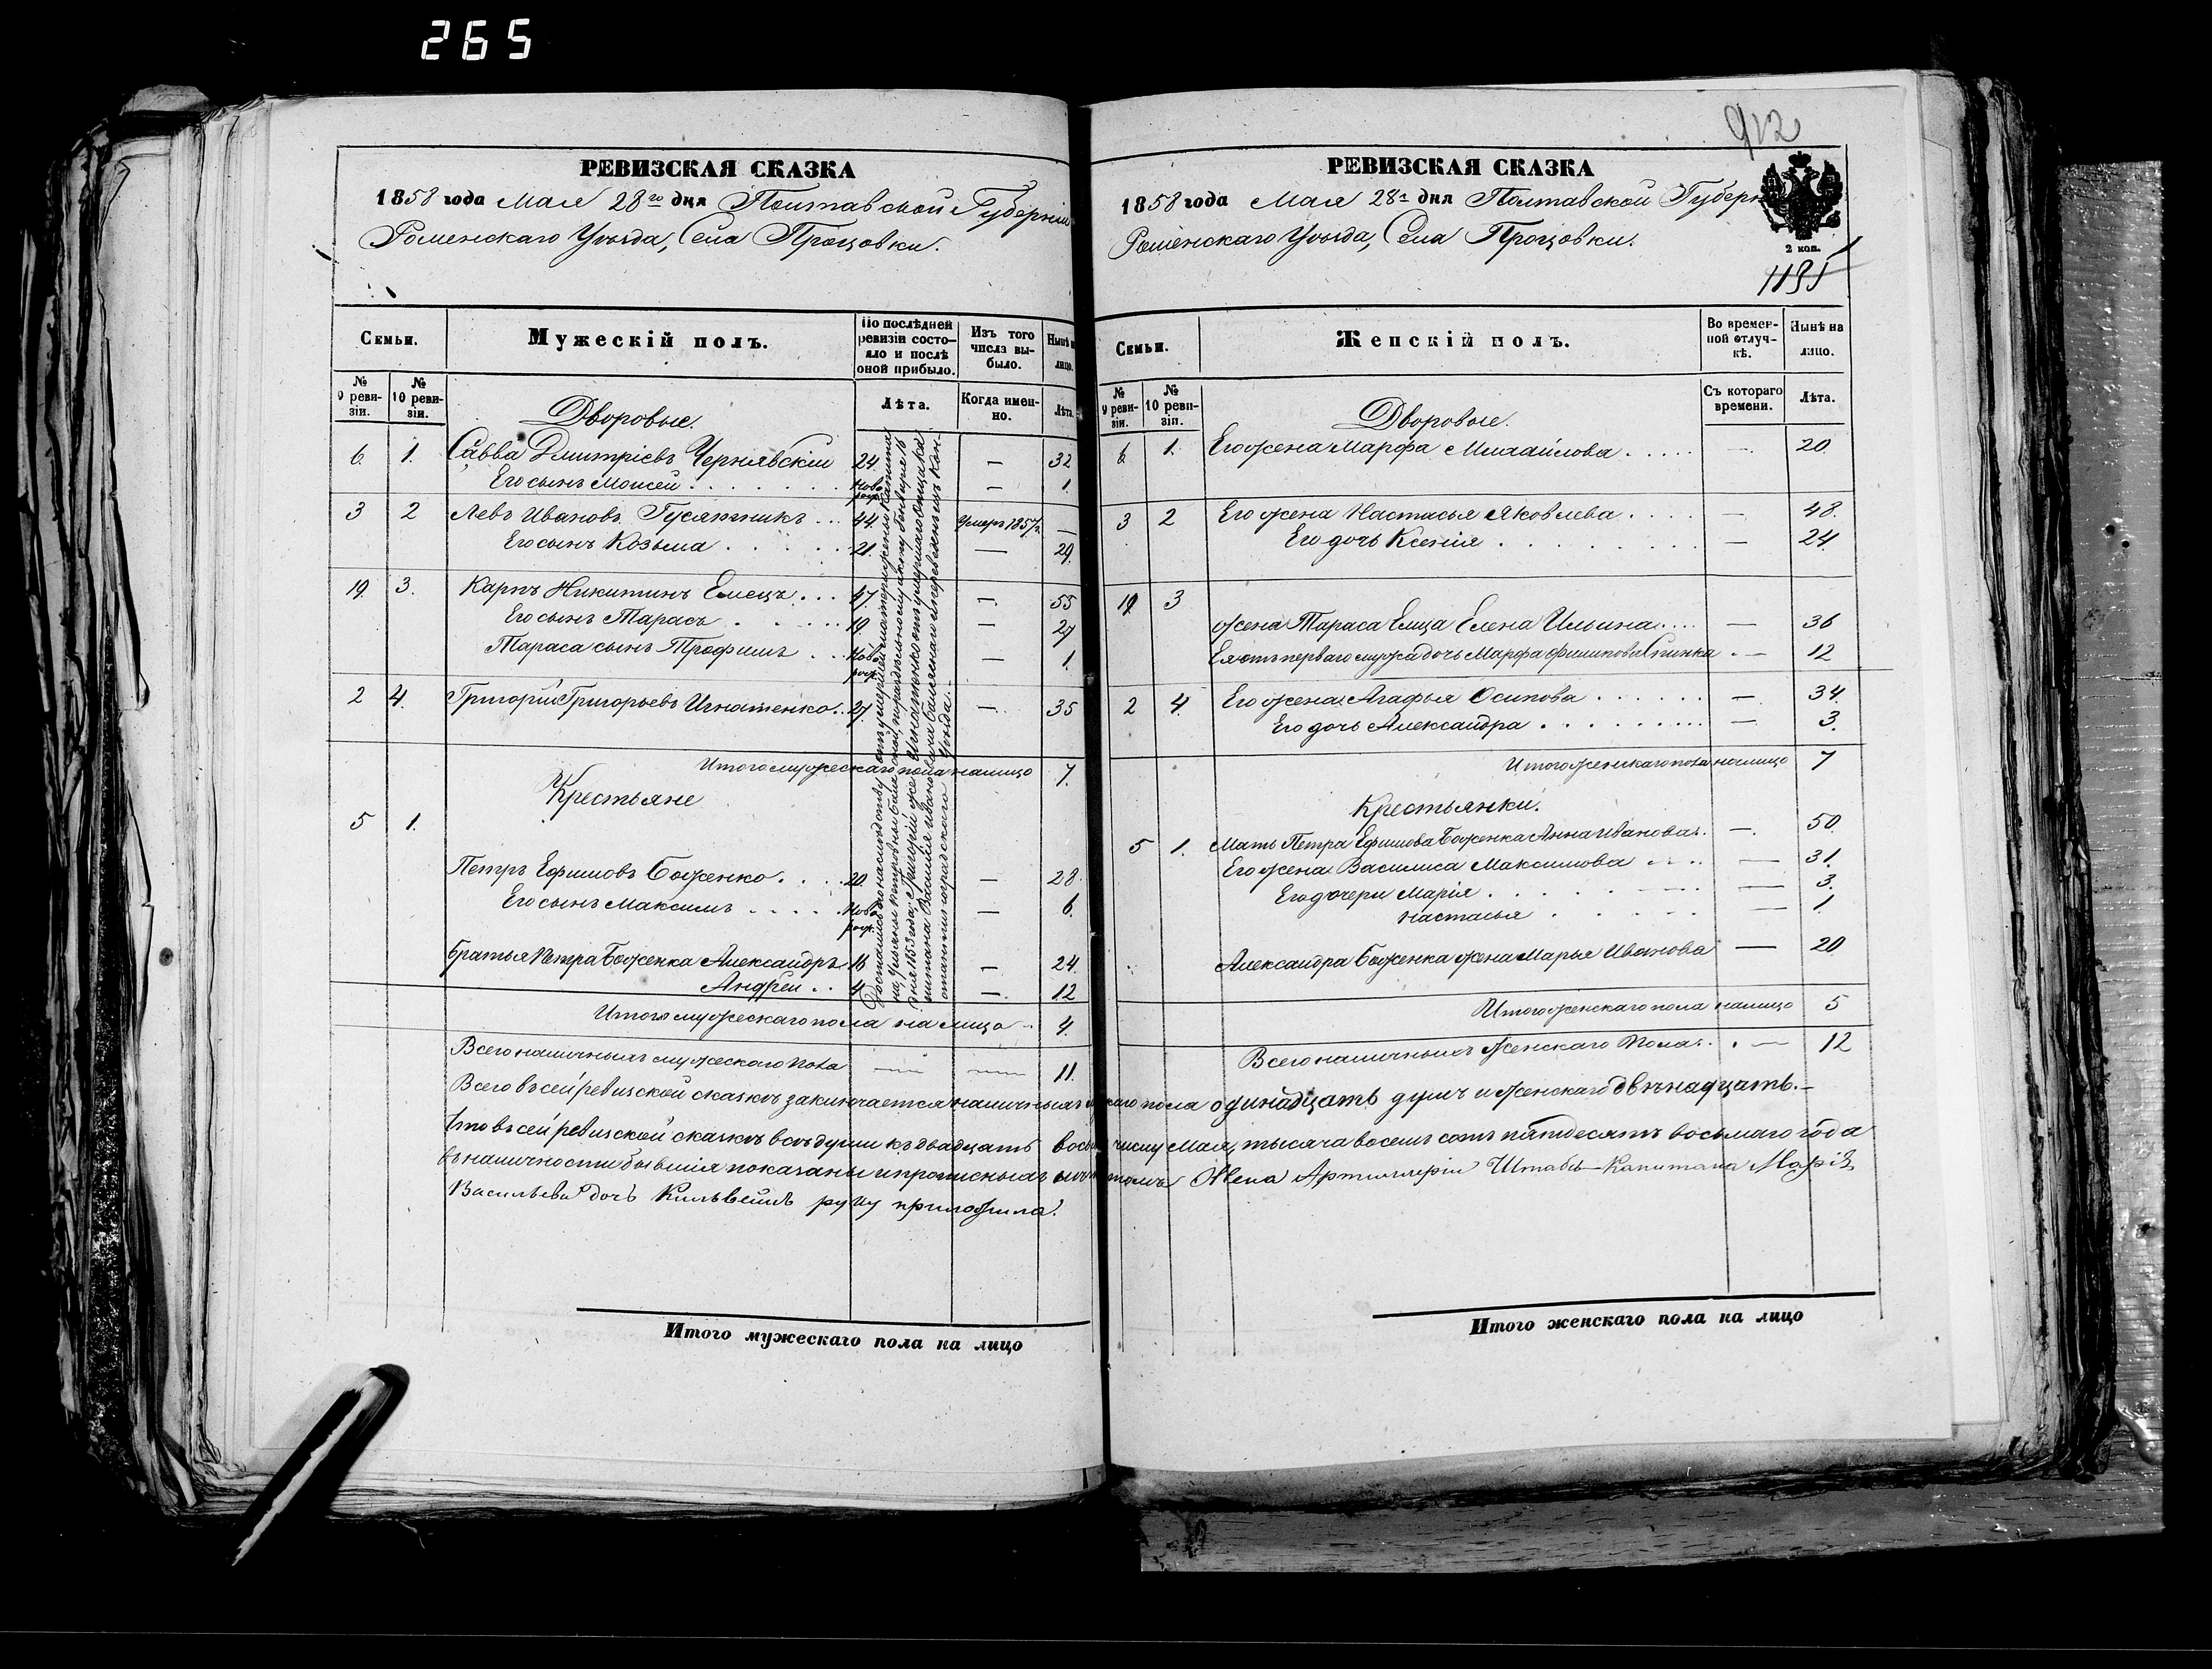 265
РЕВИЗСКАЯ СКАЗКА
1858 года Мая 28го дня Полтавской Губерніи
Роменскаго Уѣзда, Села Процовки.
Семьи.
Мужескій полъ.
По послѣдней ревизіи состояло и послѣ оной прибыло.
Изъ того числа выбыло.
Нынѣ на лицо.
№ 9 ревизіи.
№ 10 ревизіи.
Лѣта.
Когда именно.
Лѣта.
Дворовые.
6. 1. Савва Дмитріевъ Чернявскій 24. — 32
Его сынъ Моисей . . .Ново рож. — 1.
3 2 Левъ Ивановъ Гусятникъ . . . 44. Умеръ 1857г. —
Его сынъ Козьма . . . 21. — 29.
19. 3. Карпъ Никитинъ Емецъ . . . 47. — 55
Его сынъ Тарасъ . . . 19. — 27
Тараса сынъ Трофимъ . . Ново рож. — 1.
2 4. Григорій Григорьевъ Игнатенко . . 27. — 35
Итого мужескаго пола налицо 7.
Крестьяне
5 1.
Петръ Ефимовъ Боженко . . . 20. — 28.
Его сынъ Максимъ . . . Ново рож. — 6.
Братья Петра Боженка Александръ 16 — 24.
Андрей . . 4. — 12
Итого мужескаго пола на лицо . 4.
Всего наличныхъ мужескаго пола — — 11.
Достались по наслѣдству отъ умершей матери жены Капитана
дня 1853 года; Григорій же Игнатенко отъ умершаго отца Капитана Василія Ивановича
Уѣзда.
РЕВИЗСКАЯ СКАЗКА
912
1858 года Мая 28го дня Полтавской Губерн
Роменскаго Уѣзда, Села Процовки.
2 коп.
1195
Семьи.
Женскій полъ.
Во временной отлучкѣ.
Нынѣ на лицо.
№ 9 ревизіи.
№ 10 ревизіи.
Съ котораго времени.
Лѣта.
Дворовые.
6 1. Его жена Марфа Михайлова . . . . . — 20.
3 2 Его жена Настасья Яковлева . . . . — 48.
Его дочь Ксенія . . . — 24.
19 3
жена Тараса Емца Елена Ильина . . . . — 36
Ея отъ перваго мужа дочь Марфа Филипова . — 12
2 4. Его жена Агафья Осипова . . . — 34.
Его дочь Александра . . . — 3.
Итого женскаго пола налицо 7
Крестьянки.
5 1. Мать Петра Ефимова Боженка Анна Иванова . — 50.
Его жена Василиса Максимова . . . — 31.
Его дочери Марія . . . — 3.
Настасья . . . — 1.
Александра Боженка жена Марья Иванова — 20
Итого женскаго пола налицо 5
Всего наличныхъ женскаго пола . . — 12
Всего въ сей ревизской сказкѣ заключается наличныхъ мужскаго пола одинадцать душъ и женскаго двѣнадцать. —
Что въ сей ревизской сказкѣ всѣ души къ двадцать восьм числу Мая, тысяча восемь сотъ пятдесятъ восьмаго года
въ наличности бывшія показаны и прописныхъ нѣтъ въ томъ Жена Артиллеріи Штабсъ-Капитана Марія
Васильева дочь Кильвейнъ руку приложила.
Итого мужескаго пола на лицо
Итого женскаго пола на лицо